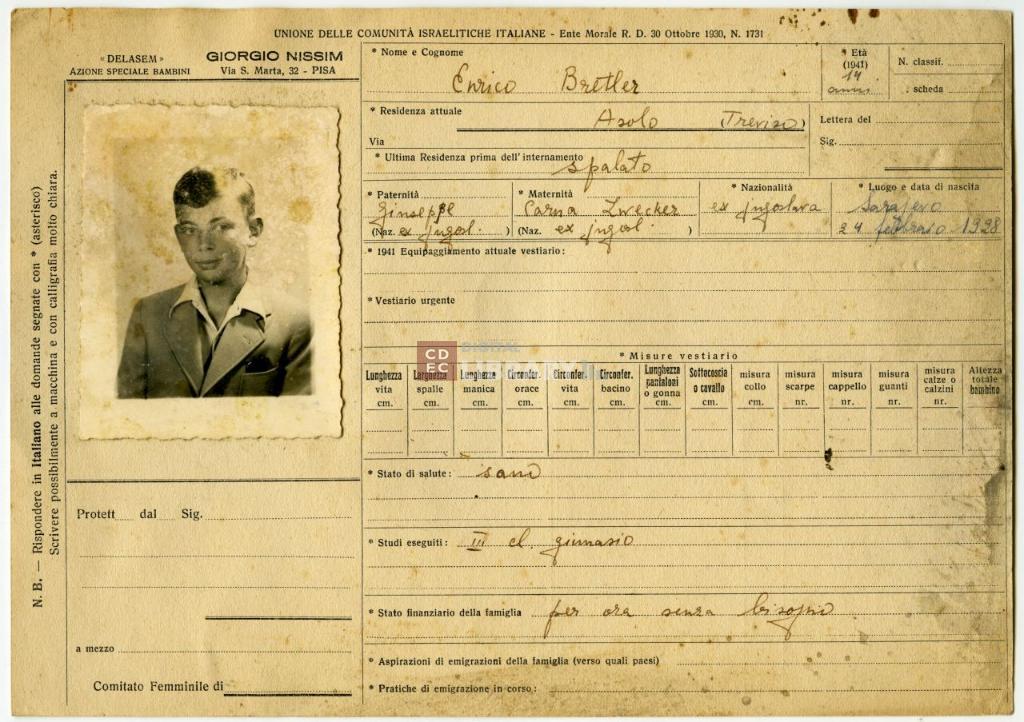 UNIONE DELLE COMUNITÀ ISRAELITICHE ITALIANE - Ente Morale R. D. 30 Ottobre 1930, N. 1731
« DELASEM »
AZIONE SPECIALE BAMBINI
GIORGIO NISSIM
Via S. Marta, 32 - PISA
* Nome e Cognome
Enrico Bretler
* Età
(1941)
14
anni
N. classif.
. scheda
* Residenza attuale
Asolo (Treviso)
Via
Lettera del
Sig.
* Ultima Residenza prima dell'internamento
Spalato
* Paternità
Giuseppe
(Naz. ex jugosl. )
* Maternità
Zwecker
(Naz. ex jugosl. )
* Nazionalità
ex jugoslava
* Luogo e data di nascita
Sarajevo
24 febbraio 1928
* 1941 Equipaggiamento attuale vestiario :
* Vestiario urgente
* Misure vestiario
Lunghezza vita cm.
Larghezza spalle cm.
Lunghezza manica cm.
Circonfer. orace cm.
Circonfer. vita cm.
Circonfer. bacino cm.
Lunghezza pantaloni o gonna cm.
Sottocoscia o cavallo cm.
misura collo cm.
misura scarpe nr.
misura cappello nr.
misura guanti nr.
misura calze o calzini nr.
Altezza totale bambino
CD
EC
DIGITAL
LIBRARY
* Stato di salute : sano
* Studi eseguiti : III cl. ginnasio
* Stato finanziario della famiglia per ora senza bisogno
* Aspirazioni di emigrazioni della famiglia (verso quali paesi)
* Pratiche di emigrazione in corso :
Protett dal Sig.
a mezzo
Comitato Femminile di
N. B. — Rispondere in Italiano alle domande segnate con * (asterisco)
Scrivere possibilmente a macchina e con calligrafia molto chiara.